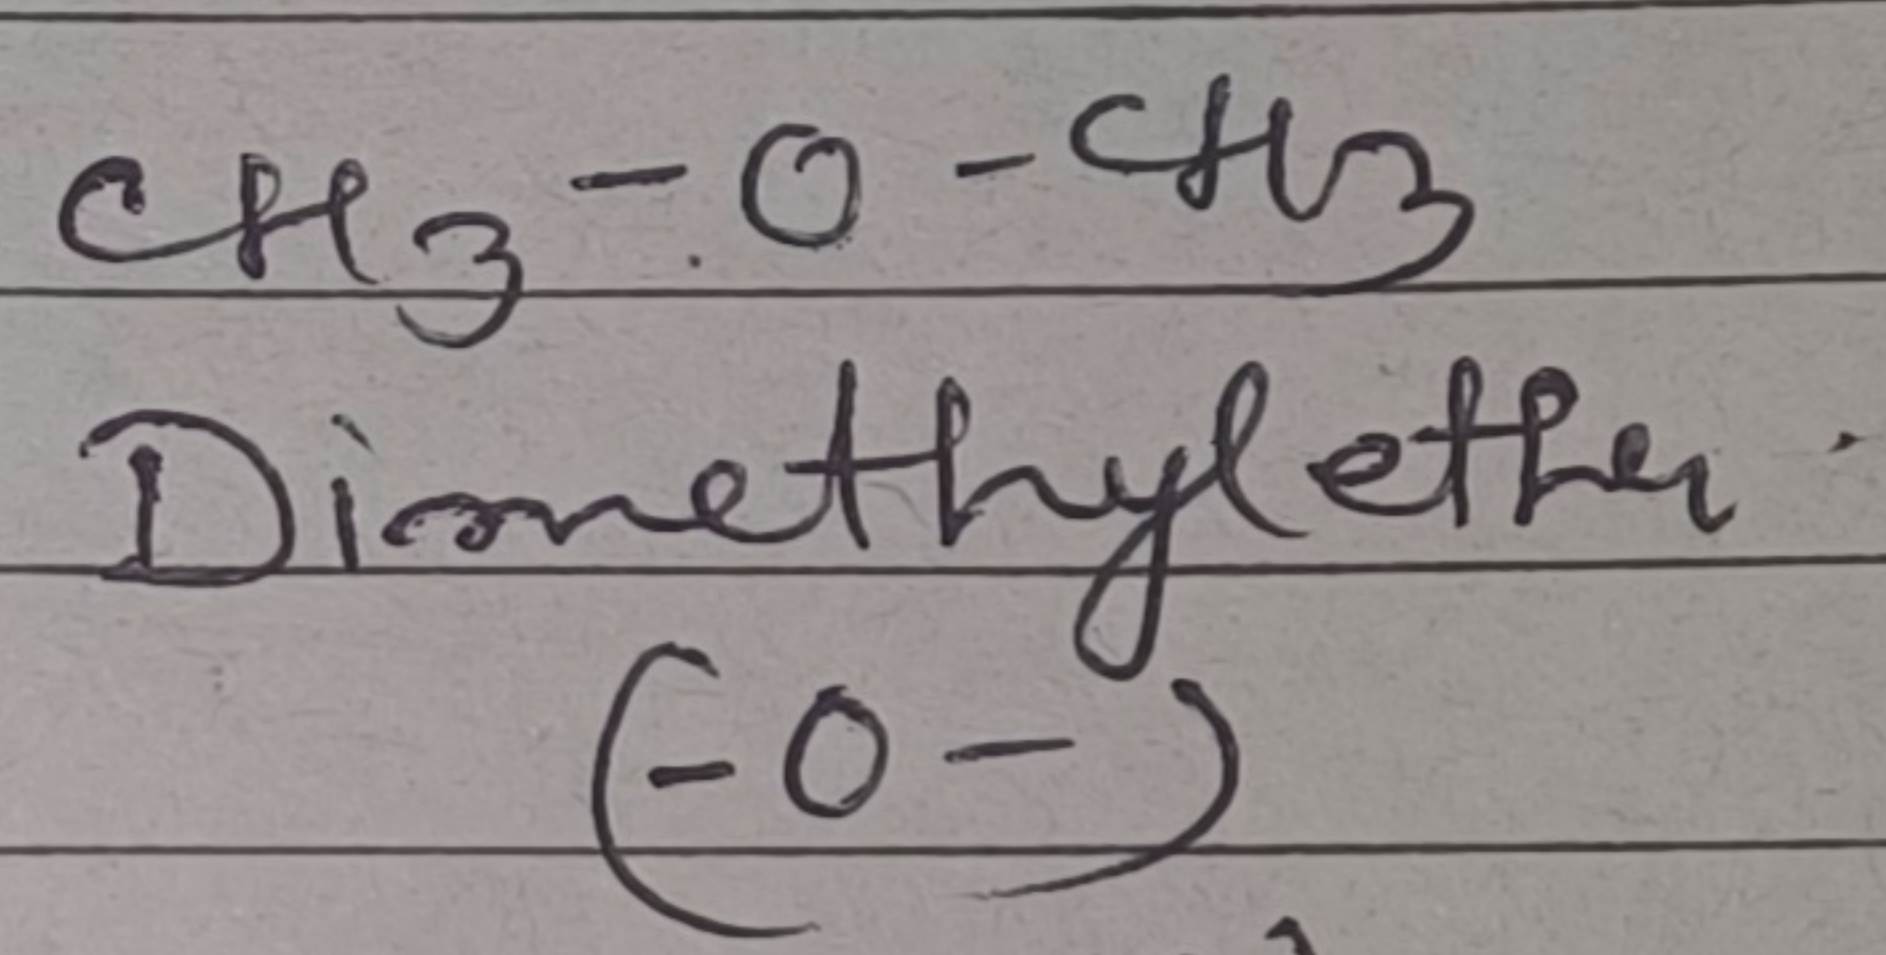 CH3 - O - CH3
Dimethylether
(- O -)